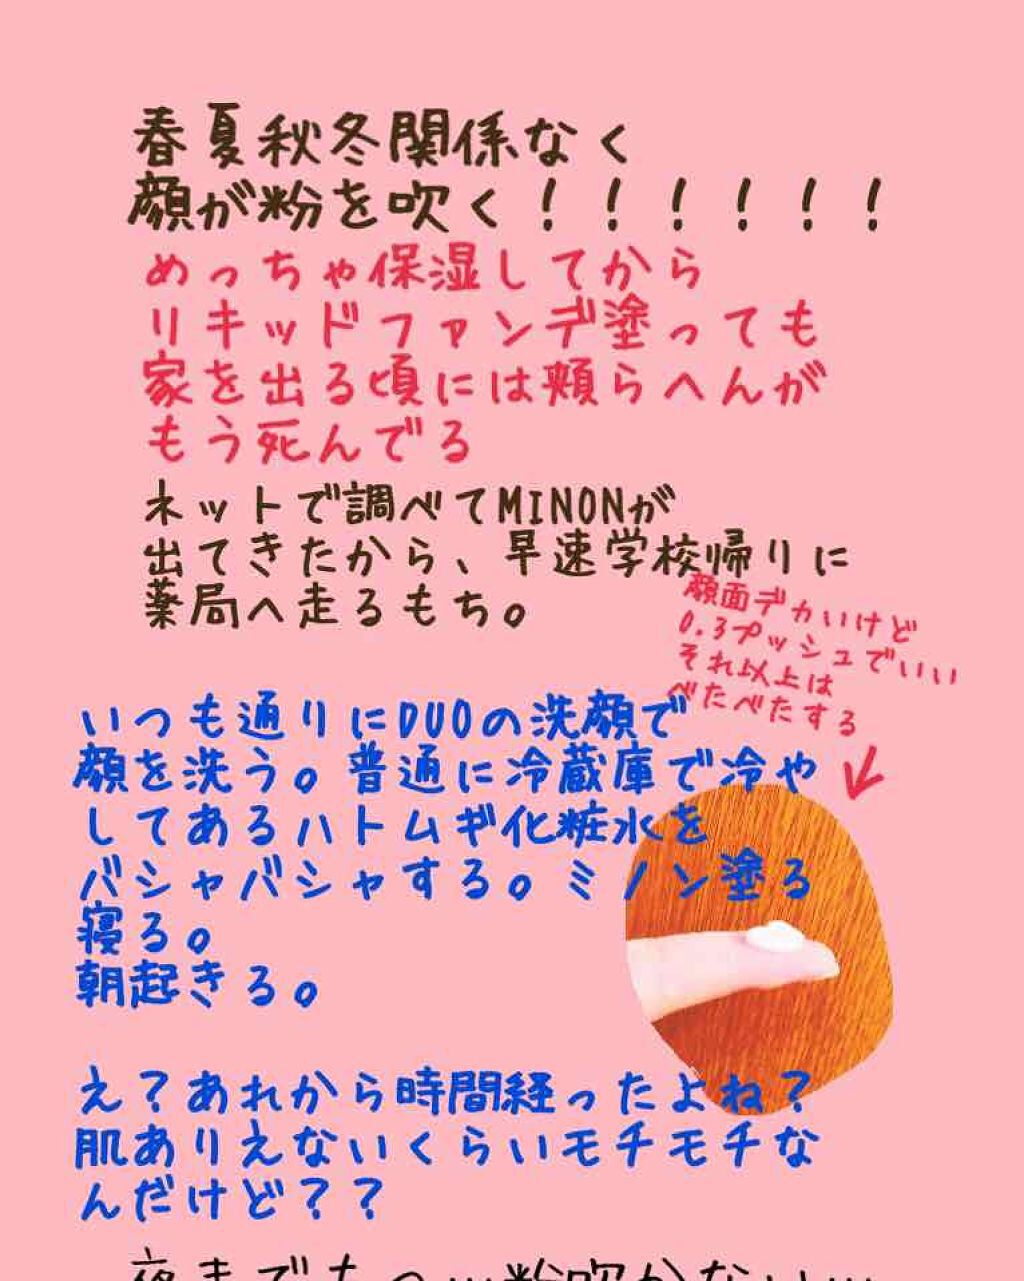 春夏秋冬関係なく
顔が粉を吹く！！！！！！
めっちゃ保湿してから
リキッドファンデ塗っても
家を出る頃には頬らへんが
もう死んでる
ネットで調べてMINONが
出てきたから、早速学校帰りに
薬局へ走るもち。
顔面デカいけど
0.3プッシュでいい
それ以上は
べたべたする
いつも通りにDUOの洗顔で
顔を洗う。普通に冷蔵庫で冷や
してあるハトムギ化粧水を
バシャバシャする。ミノン塗る
寝る。
朝起きる。
え？あれから時間経ったよね？
肌ありえないくらいモチモチな
んだけど？？